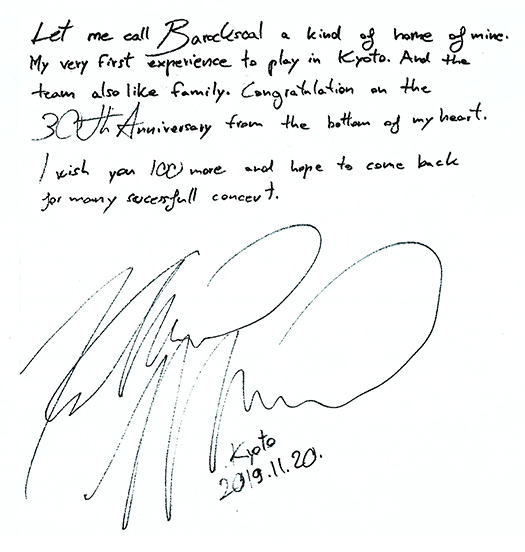 Let me call Barocksaal a kind of home of mine.
My very first experience to play in Kyoto. And the
team also like family. Congratulation on the
30th Anniversary from the bottom of my heart.
I wish you 100 more and hope to come back
for many sucessfull concert.
Kyoto
2019.11.20.